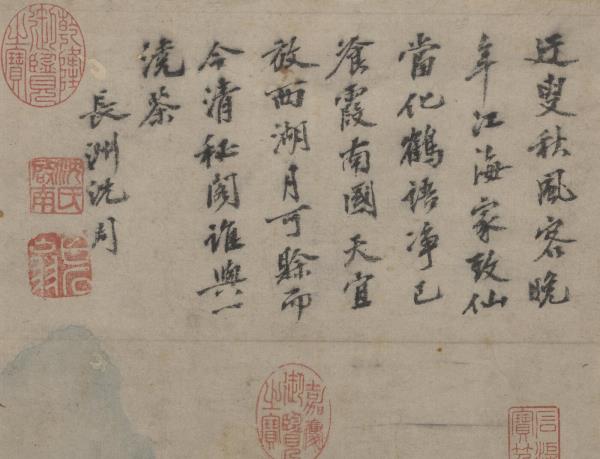 迂叟秋風客晚
年江海家致仙
當化鶴語淨已
飡霞南國天宜
放西湖月可賒而
今清秘閣誰與一
澆茶
長洲沈周
乾隆御覽之寶
沈氏啟南
嘉慶御覽之寶